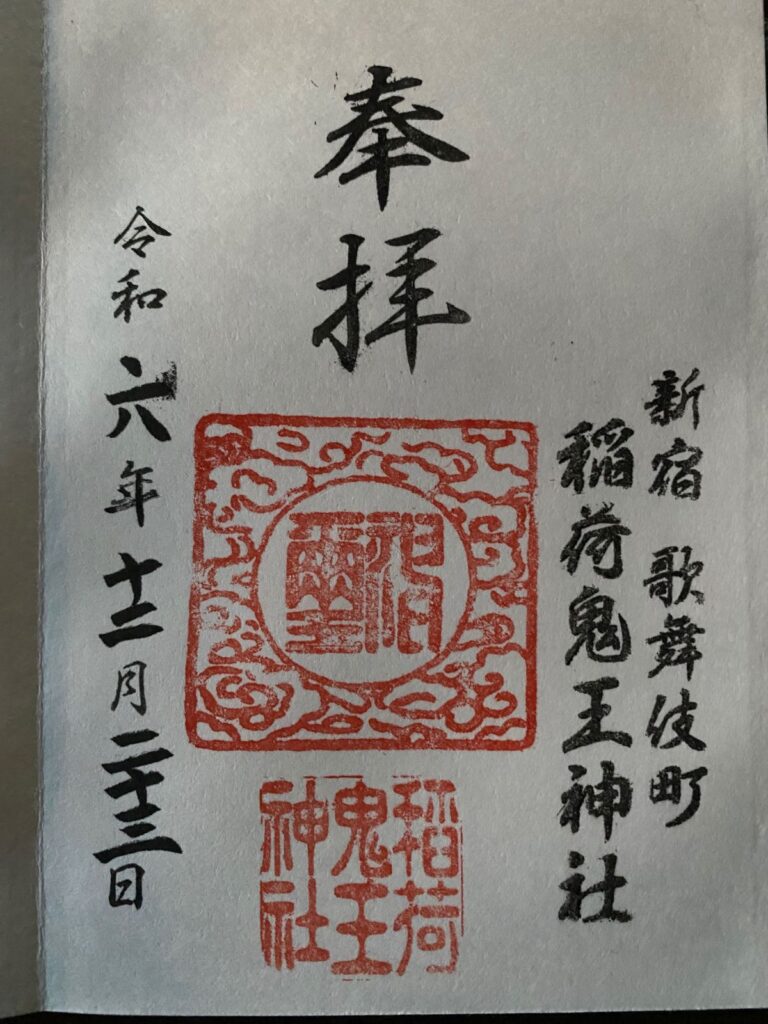 奉拝
新宿 歌舞伎町
稲荷鬼王神社
稲荷
鬼王
神社
令和六年十二月二十三日